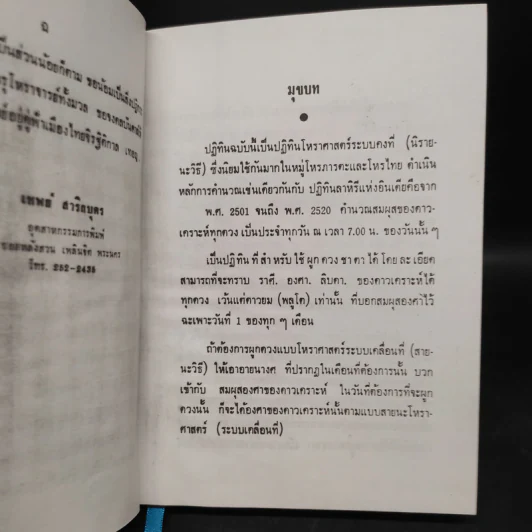 ฉ
เป็นส่วนน้อยก็ตาม ขอน้อมเป็นสิ่งปฏิการ
ครูโหราจารย์ทั้งมวล ขอจง
อยู่คู่ฟ้าเมืองไทยจิรฐิติกาล เทอญ
เทพย์ สาริกบุตร
อุตสาหกรรมการพิมพ์
ซอยหลังสวน เพลินจิต พระนคร
โทร. 252-2435
มุขบท
ปฏิทินฉบับนี้เป็นปฏิทินโหราศาสตร์ระบบคงที่ (นิราย-
นะวิธี) ซึ่งนิยมใช้กันมากในหมู่โหรภารตะและโหรไทย ดำเนิน
หลักการคำนวณเช่นเดียวกันกับ ปฏิทินลาหิรีแห่งอินเดียคือจาก
พ.ศ. 2501 จนถึง พ.ศ. 2520 คำนวณสมผุสของดาว-
เคราะห์ทุกดวง เป็นประจำทุกวัน ณ เวลา 7.00 น. ของวันนั้น ๆ
เป็นปฏิทิน ที่ สำ หรับ ใช้ ผูก ดวง ชา ตา ได้ โดย ละ เอียด
สามารถที่จะทราบ ราศี. องศา. ลิบดา. ของดาวเคราะห์ได้
ทุกดวง เว้นแต่ดาวยม (พลูโต) เท่านั้น ที่บอกสมผุสองศาไว้
ฉะเพาะวันที่ 1 ของทุก ๆ เดือน
ถ้าต้องการผูกดวงแบบโหราศาสตร์ระบบเคลื่อนที่ (สาย-
นะวิธี) ให้เอาอายนางศ ที่ปรากฏในเดือนที่ต้องการนั้น บวก
เข้ากับ สมผุสองศาของดาวเคราะห์ ในวันที่ต้องการที่จะผูก
ดวงนั้น ก็จะได้องศาของดาวเคราะห์นั้นตามแบบสายนะโหรา-
ศาสตร์ (ระบบเคลื่อนที่)